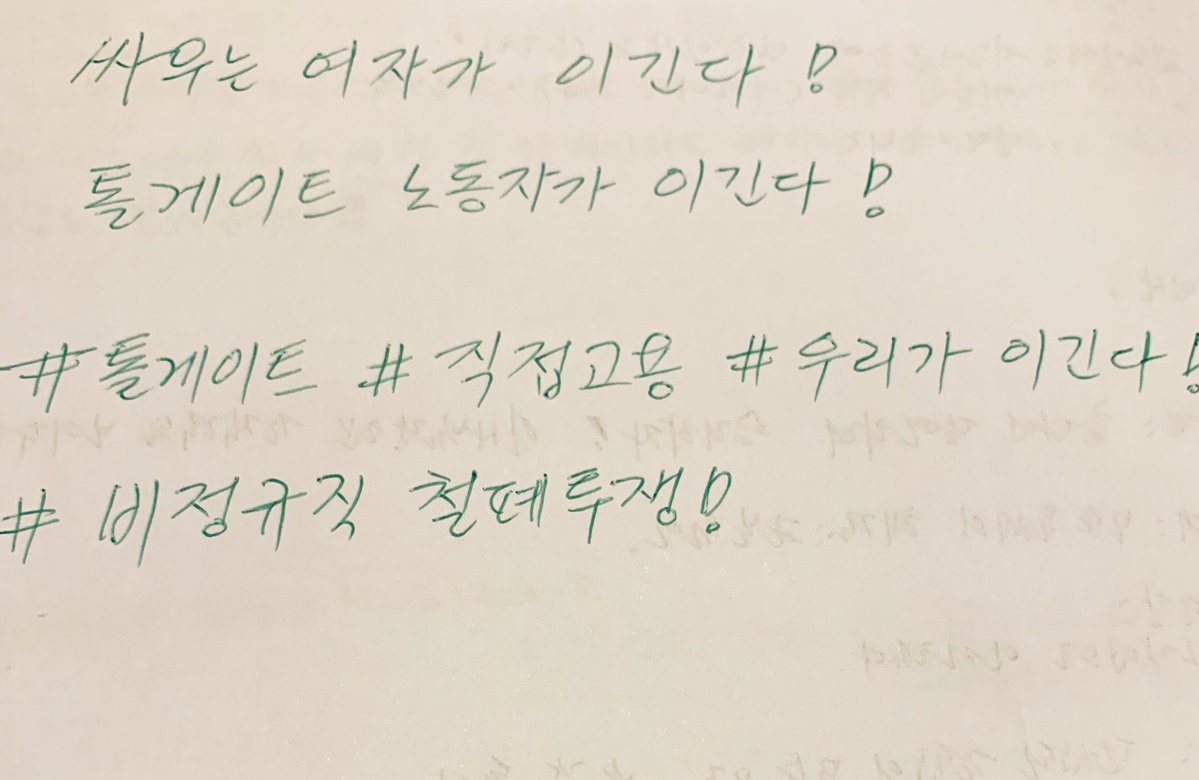 싸우는 여자가 이긴다!
톨게이트 노동자가 이긴다!
#톨게이트 #직접고용 #우리가 이긴다!
#비정규직 철폐투쟁!